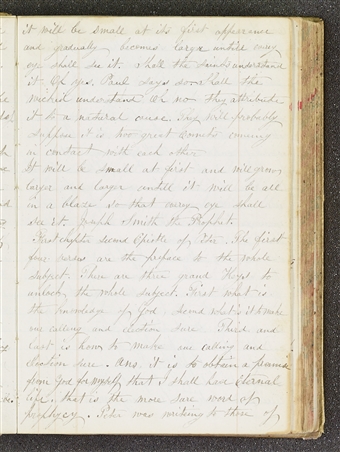 it will be small at its first apperance
and gradually becomes larger untill every
eye shall see it. shall the saints understand
it Oh yes. Paul says so. Shall the
wicked understand Oh no they attribute
it to a natural cause. They will probably
suppose it is two great Comets coming
in contact with each other
It will be small at first and will grow
larger and larger untill it will be all
in a blaze so that every eye shall
see it. Joseph Smith the Prophet.
First chapter second Epistle of Peter. The first
four verses are the preface to the whole
subject. There are three grand Keys to
unlock the whole subject. First what is
the knowledge of God. Second what is it to make
our calling and election sure. Third and
last is how to make our calling and
Election sure. Ans. it is to obtain a promise
from God for myself that I shall have Eternal
life. that is the more sure word of
prophecy. Peter was writing to those of